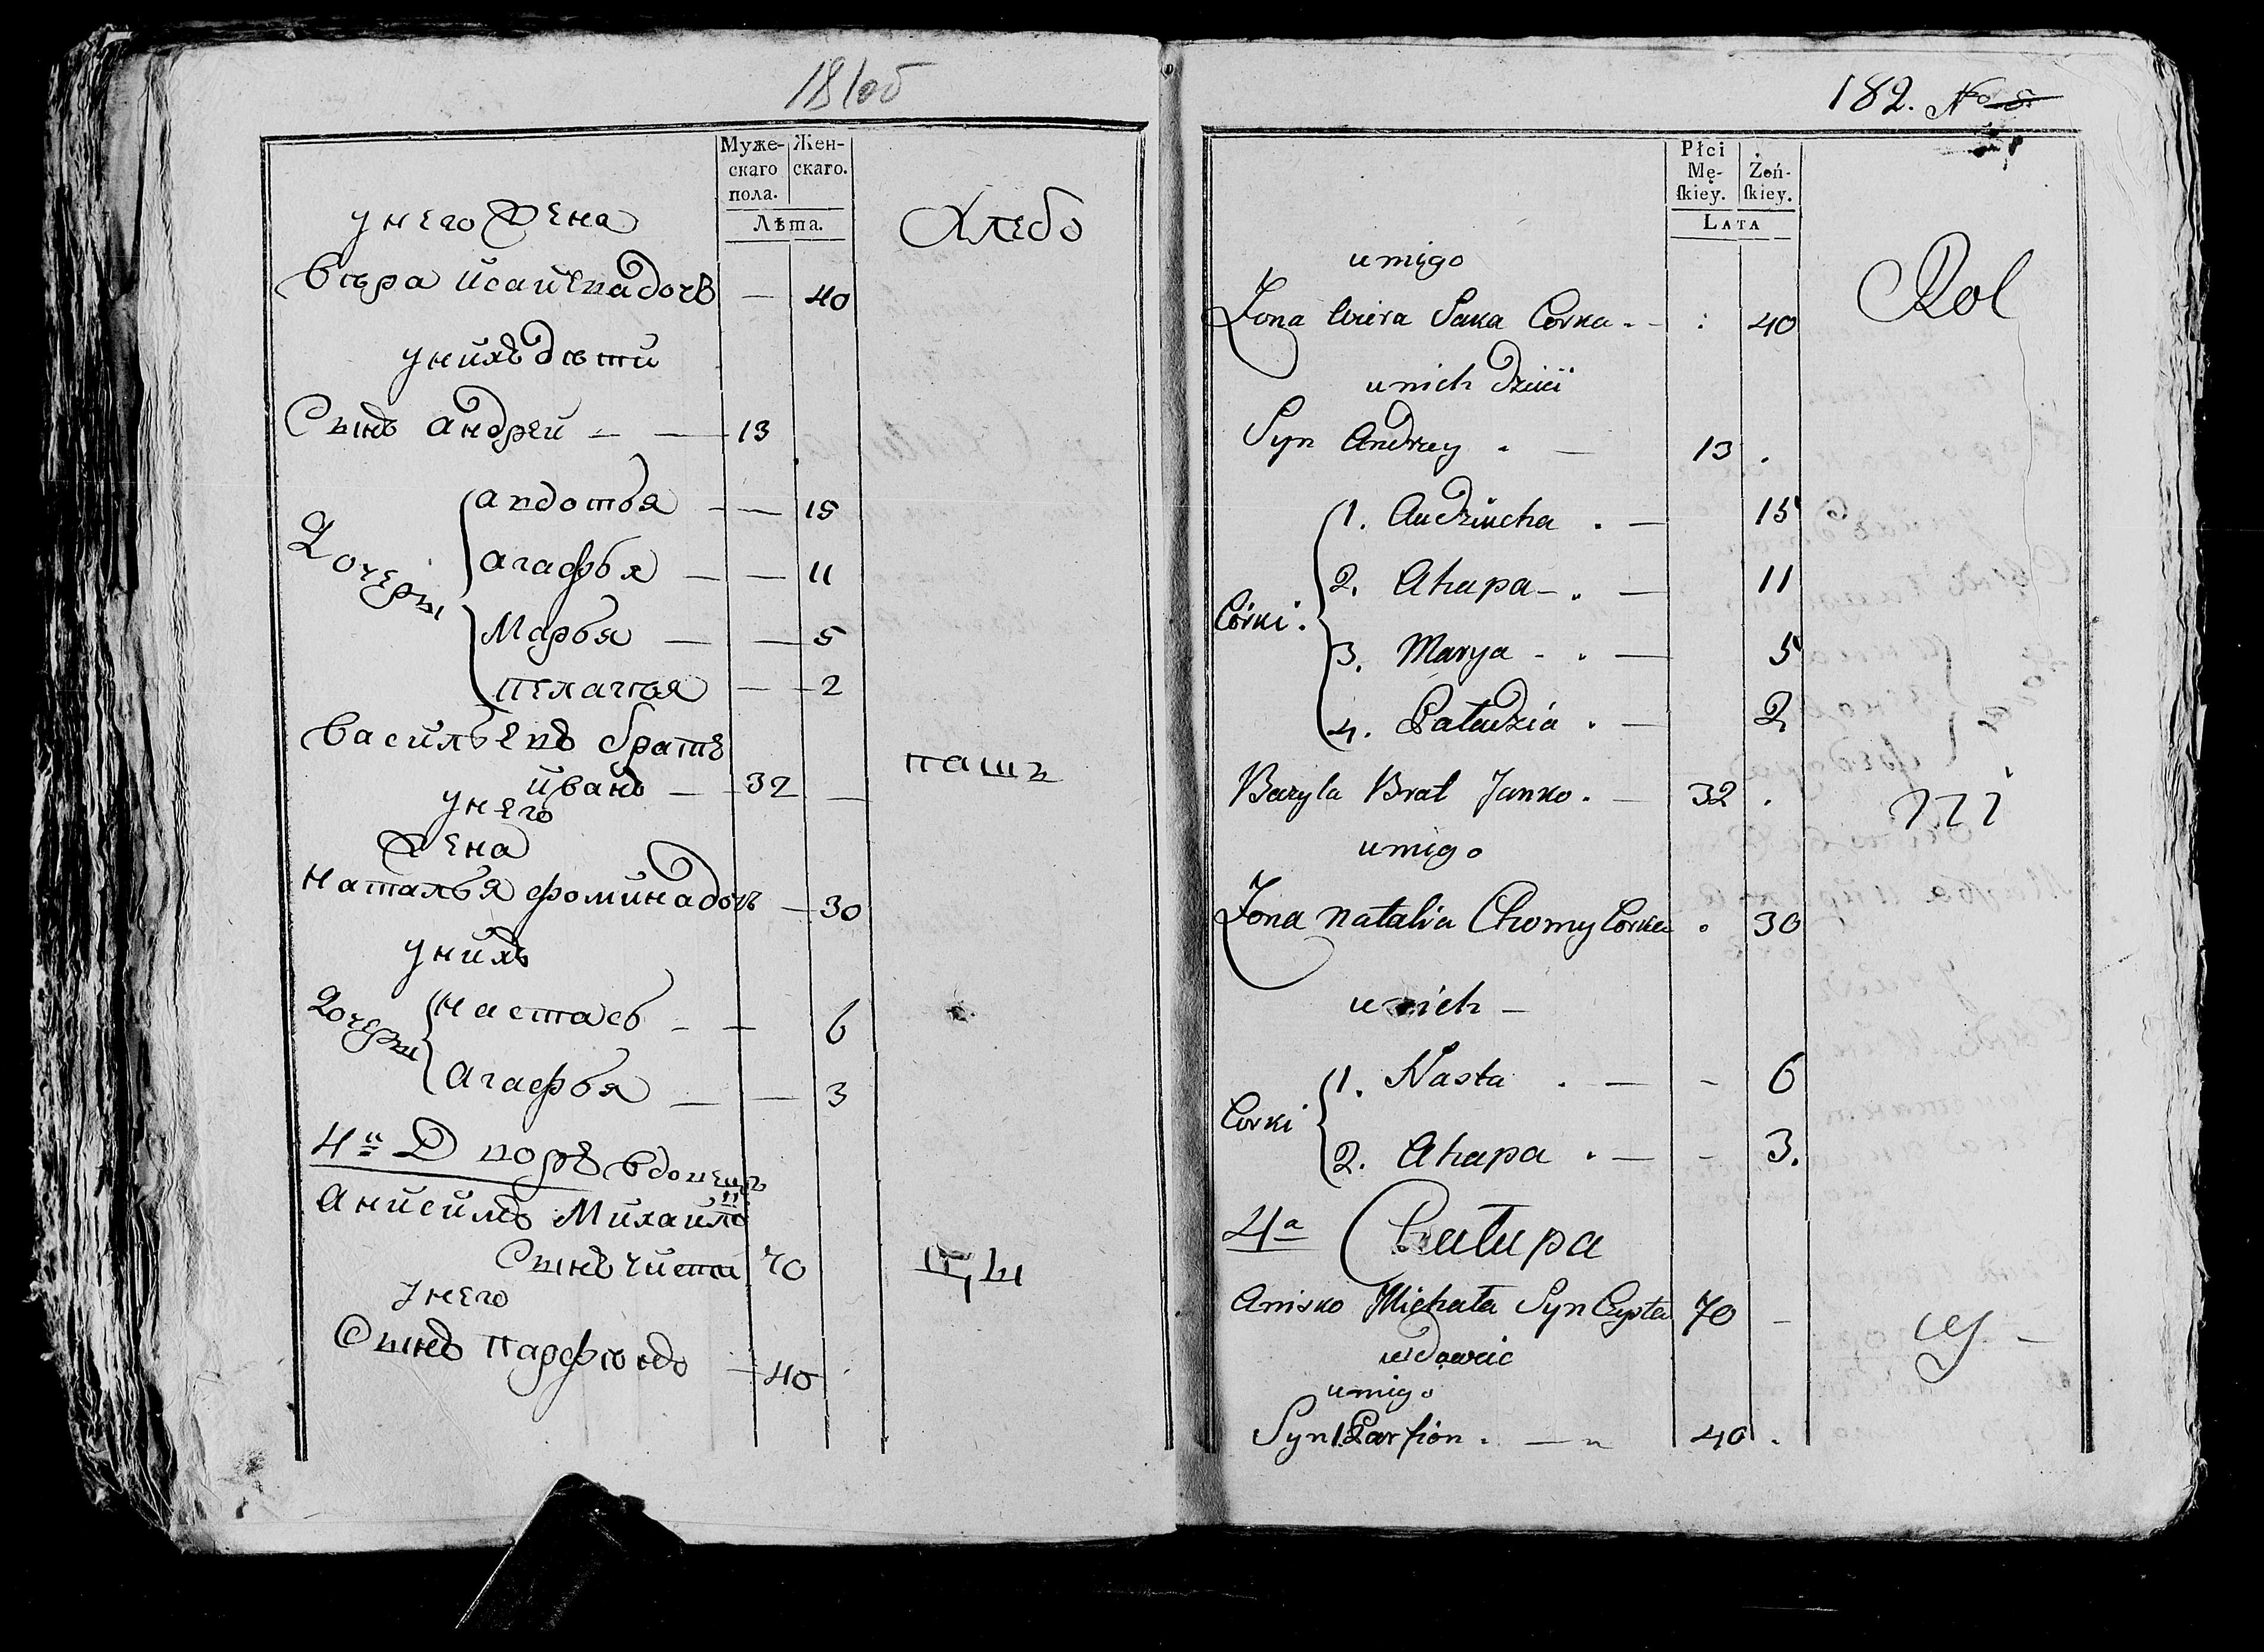 181об
Муже-
скаго
пола.
Жен-
скаго.
Лѣта.
Хлебо
у него Жена
Вѣра Исаиева дочь — 40
у нихъ дѣти
Сынъ андрей — — 13
Дочери
авдотья — — 15
агафья — — 11
Марья — — 5
пелагея — — 2
васильевъ братъ
иванъ — 32 —
паш
у него
Жена
наталья фомина дочь — 30
у нихъ
Дочери
настась — — 6
Агафья — — 3
4й Дворъ вдовецъ
Анисимъ Михайло
Сынъ чисти 70
цы
у него
Сынъ парфѣнъ — 40
182. No 8.
Płci
Mę-
skiey.
Żeń-
skiey.
LATA
Rol
u niego
Żona Wiera Saka Corka. - : 40
u nich dzieci
Syn Andrzey . — 13 .
Córki.
1. Audziucha . — 15
2. Ahapa - . — 11
3. Marya - . — 5
4. Pałudzia . — 2
Bazyla Brat Janko. — 32 .
ni
u niego
Żona Natalia Chomy Corka . 30
u nich —
Corki
1. Nasta . — - 6
2. Ahapa . — - 3.
4a Chałupa
Anisko Michała Syn Czysta 70 —
cy —
wdowiec
u niego
Syn 1. Parfion . — 40 .